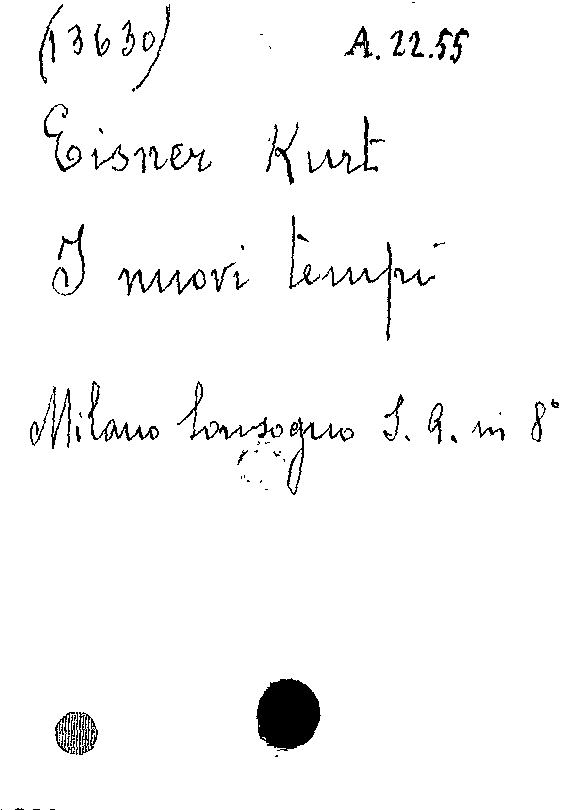 (13630) A. 22.55
Eisner Kurt
I nuovi tempi
Milano Sonsogno S. A. in 8°